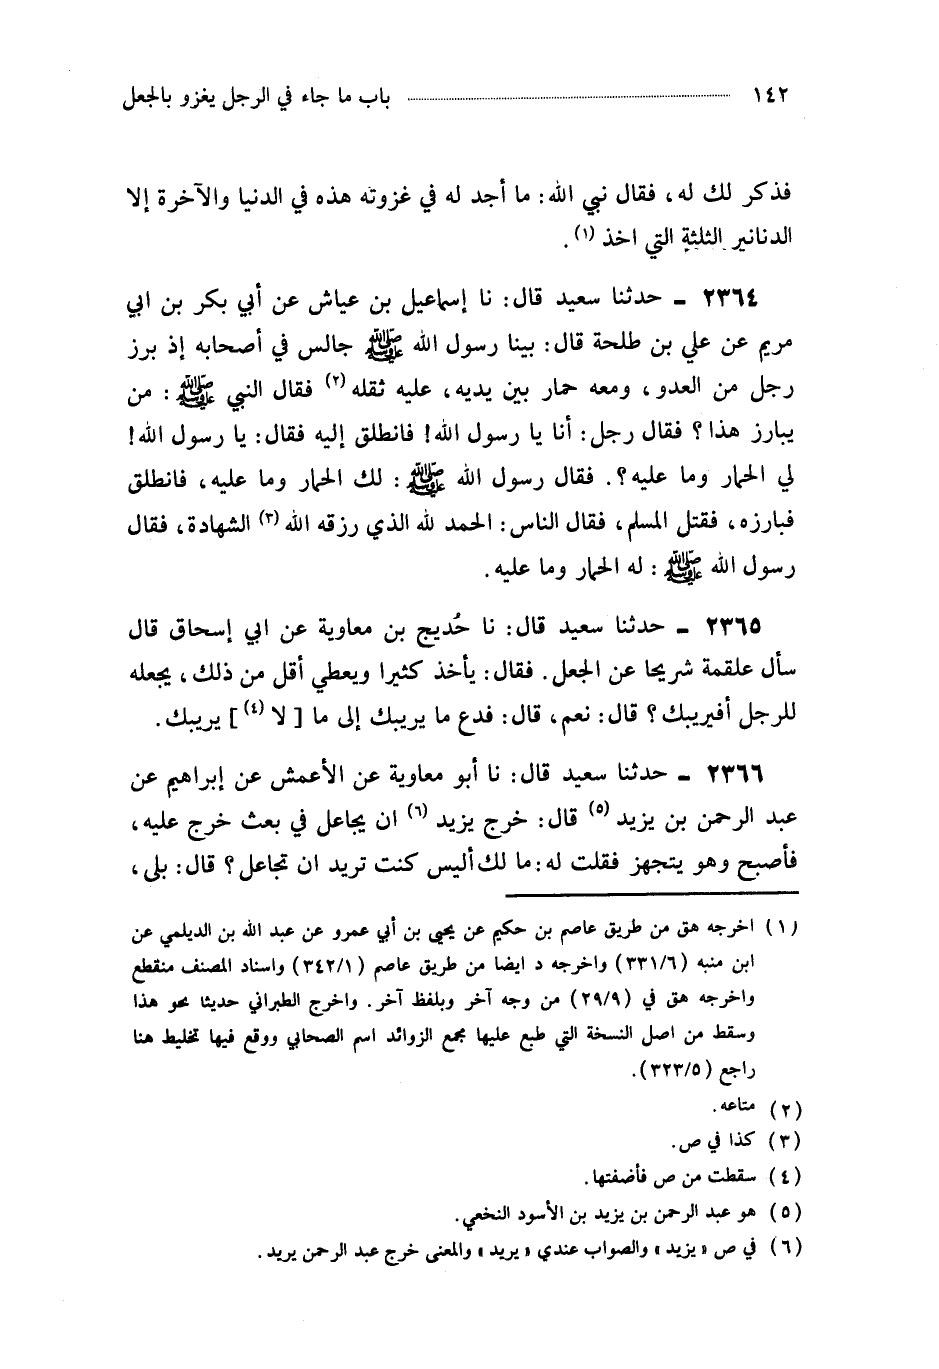 ١٤٢ ........ باب ما جاء في الرجل يغزو بالجعل
فذكر لك له، فقال نبي الله: ما أجد له في غزوته هذه في الدنيا والآخرة إلا
الدنانير الثلثة التي اخذ (١).
٢٣٦٤ ـ حدثنا سعيد قال: نا إسماعيل بن عياش عن أبي بكر بن ابي
مريم عن علي بن طلحة قال: بينا رسول الله ﷺ جالس في أصحابه إذ برز
رجل من العدو، ومعه حمار بين يديه، عليه ثقله (٢) فقال النبي ﷺ: من
يبارز هذا؟ فقال رجل: أنا يا رسول الله! فانطلق إليه فقال: يا رسول الله!
لي الحمار وما عليه؟. فقال رسول الله ﷺ: لك الحمار وما عليه، فانطلق
فبارزه، فقتل المسلم، فقال الناس: الحمد لله الذي رزقه الله (٣) الشهادة، فقال
رسول الله ﷺ: له الحمار وما عليه.
٢٣٦٥ ـ حدثنا سعيد قال: نا حُديج بن معاوية عن ابي إسحاق قال
سأل علقمة شريحا عن الجعل. فقال: يأخذ كثيرا ويعطي أقل من ذلك، يجعله
للرجل أفيريبك؟ قال: نعم، قال: فدع ما يريبك إلى ما [ لا (٤) ] يريبك.
٢٣٦٦ ـ حدثنا سعيد قال: نا أبو معاوية عن الأعمش عن إبراهيم عن
عبد الرحمن بن يزيد (٥) قال: خرج يزيد (٦) ان يجاعل في بعث خرج عليه،
فأصبح وهو يتجهز فقلت له: ما لك أليس كنت تريد ان تجاعل؟ قال: بلى،
(١) اخرجه هق من طريق عاصم بن حكيم عن يحيى بن أبي عمرو عن عبد الله بن الديلمي عن
ابن منبه (٣٣١/٦) واخرجه د ايضا من طريق عاصم (٣٤٢/١) واسناد المصنف منقطع
واخرجه هق في (٢٩/٩) من وجه آخر وبلفظ آخر. واخرج الطبراني حديثا نحو هذا
وسقط من اصل النسخة التي طبع عليها مجمع الزوائد اسم الصحابي ووقع فيها تخليط هنا
راجع (٣٢٣/٥).
(٢) متاعه.
(٣) كذا في ص.
(٤) سقطت من ص فأضفتها.
(٥) هو عبد الرحمن بن يزيد بن الأسود النخعي.
(٦) في ص «يزيد» والصواب عندي «يريد» والمعنى خرج عبد الرحمن يريد.